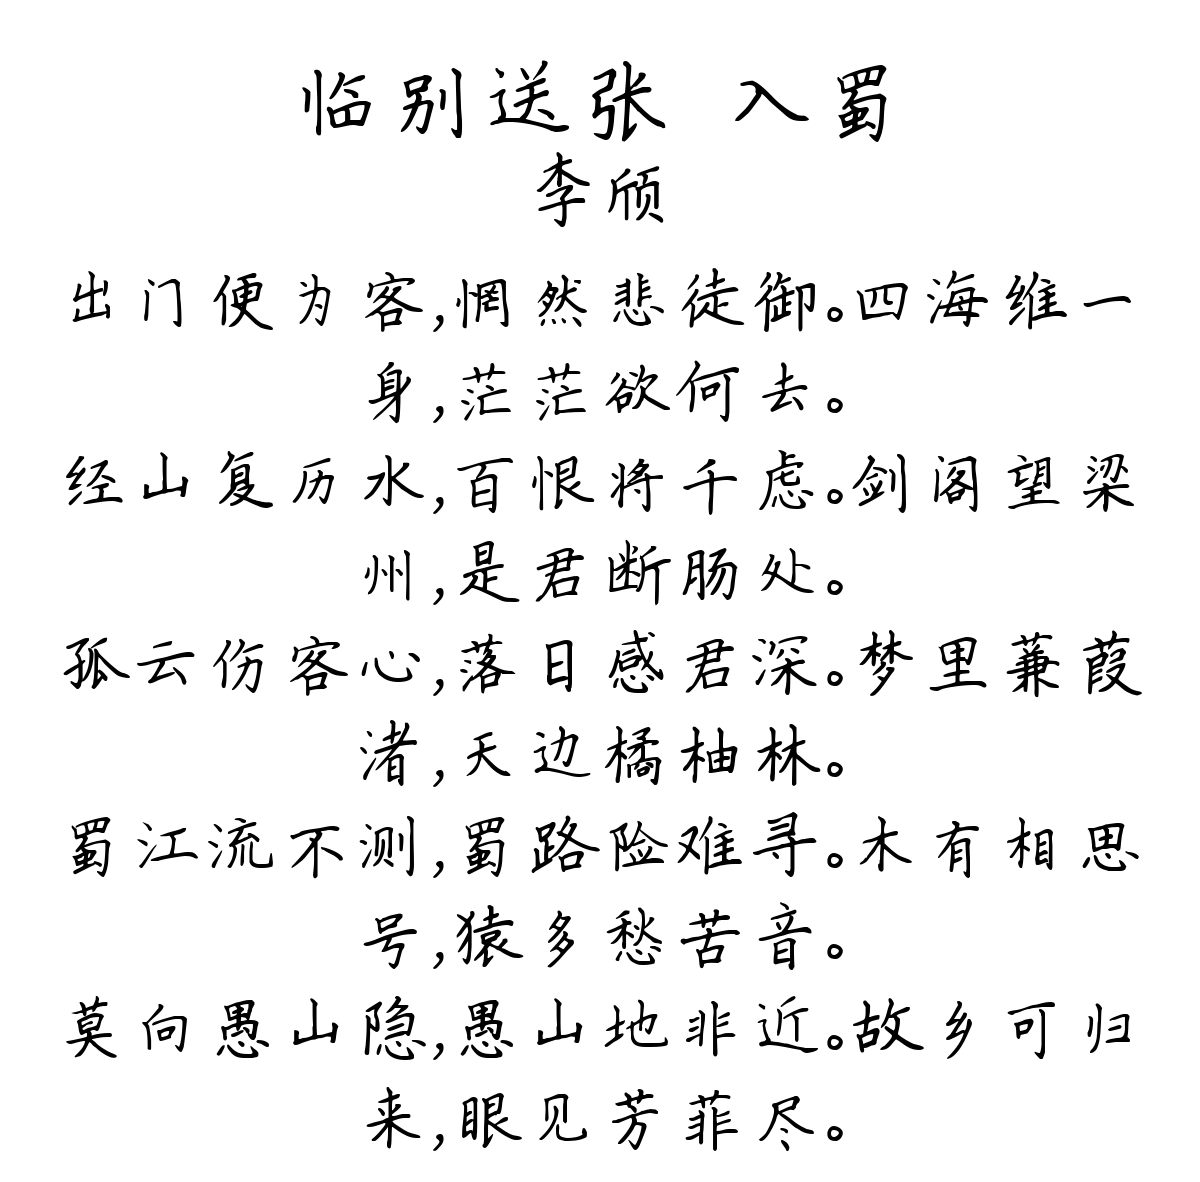 临别送张 入蜀
李颀
出门便为客,惘然悲徒御。四海维一
身,茫茫欲何去。
经山复历水,百恨将千虑。剑阁望梁
州,是君断肠处。
孤云伤客心,落日感君深。梦里蒹葭
渚,天边橘柚林。
蜀江流不测,蜀路险难寻。木有相思
号,猿多愁苦音。
莫向愚山隐,愚山地非近。故乡可归
来,眼见芳菲尽。